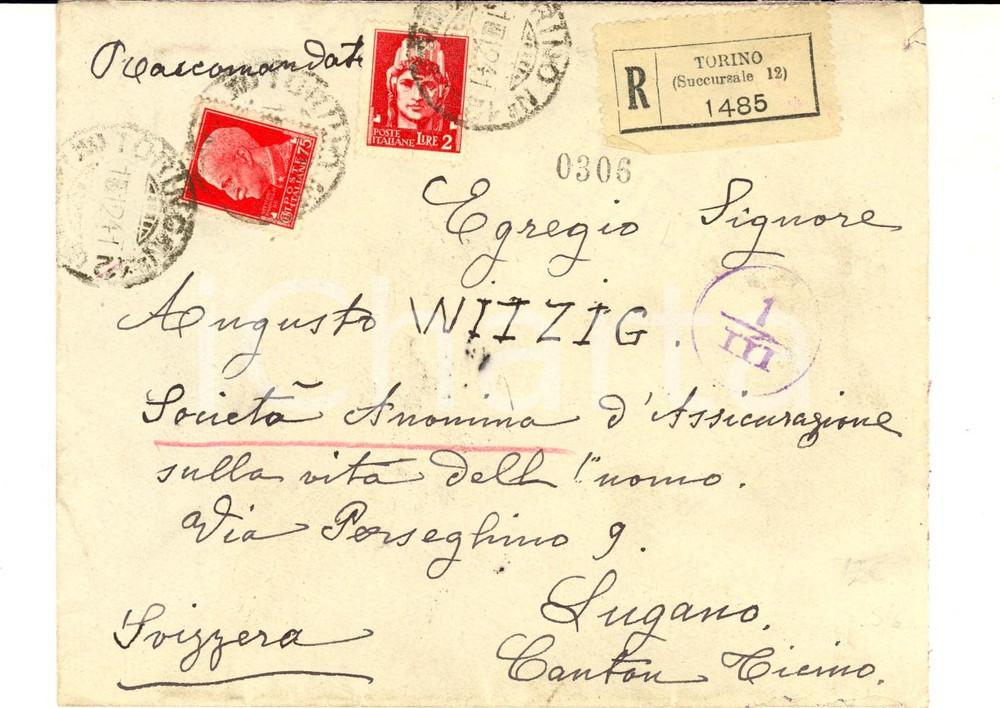 Raccomandata
POSTE ITALIANE LIRE 2
POSTE ITALIANE C. 75
TORINO
12
R
TORINO
(Succursale 12)
1485
0306
Egregio Signore
Augusto WIIZIG.
1
III
Società Anonima d'Assicurazione
sulla vita dell'uomo.
Via Perseghino 9.
Lugano.
Svizzera
Canton Ticino.